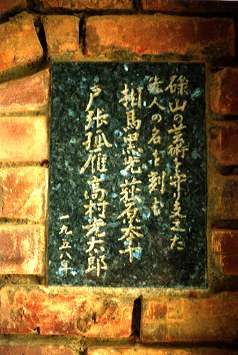 碌山の芸術を支えた
先人の名を刻む
相馬黒光 荻原本十
戸張孤雁 高村光太郎
一九五八年